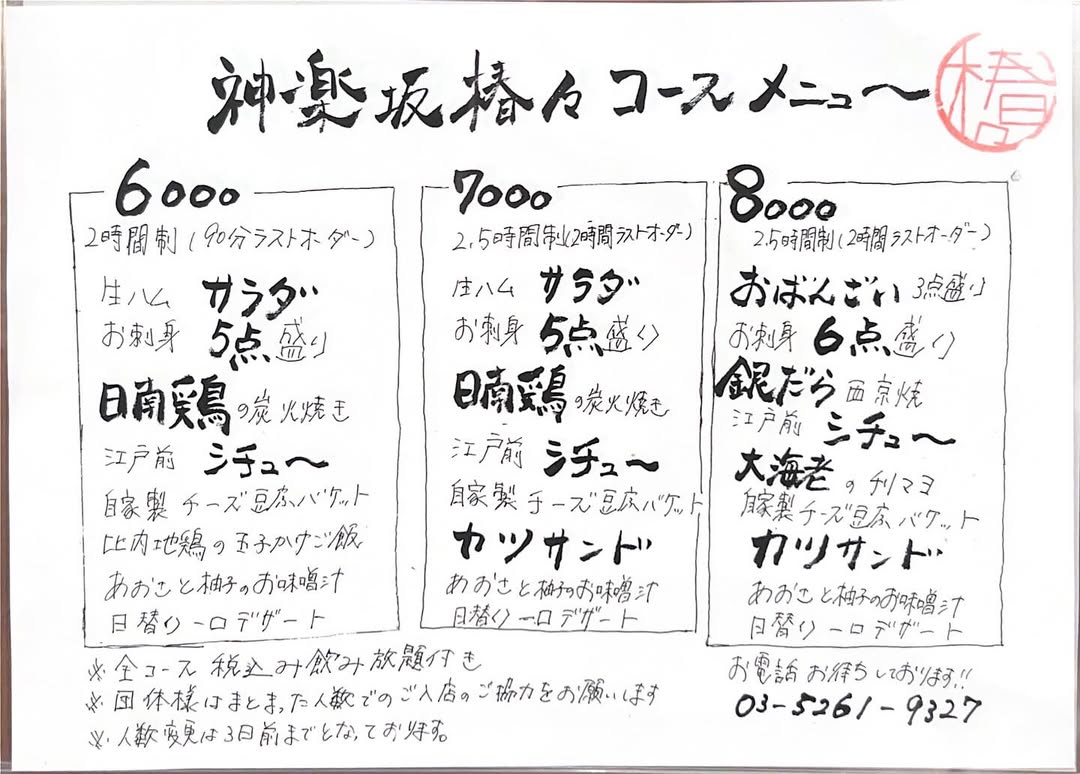 神楽坂椿々コースメニュ～
椿
6000
2時間制(90分ラストオーダー)
生ハム サラダ
お刺身 5点盛り
日南鶏の炭火焼き
江戸前 シチュ～
自家製 チーズ豆腐バケット
比内地鶏の玉子かけご飯
あおさと柚子のお味噌汁
日替り一口デザート
7000
2.5時間制(2時間ラストオーダー)
生ハム サラダ
お刺身 5点盛り
日南鶏の炭火焼き
江戸前 シチュ～
自家製 チーズ豆腐バケット
カツサンド
あおさと柚子のお味噌汁
日替り一口デザート
8000
2.5時間制(2時間ラストオーダー)
おばんざい 3点盛り
お刺身 6点盛り
銀だら 西京焼
江戸前 シチュ～
大海老のチリマヨ
自家製チーズ豆腐バケット
カツサンド
あおさと柚子のお味噌汁
日替り一口デザート
※全コース税込み飲み放題付き
※団体様はまとまった人数でのご入店のご協力をお願いします
※人数変更は3日前までとなっております。
お電話お待ちしております!!
03-5261-9327